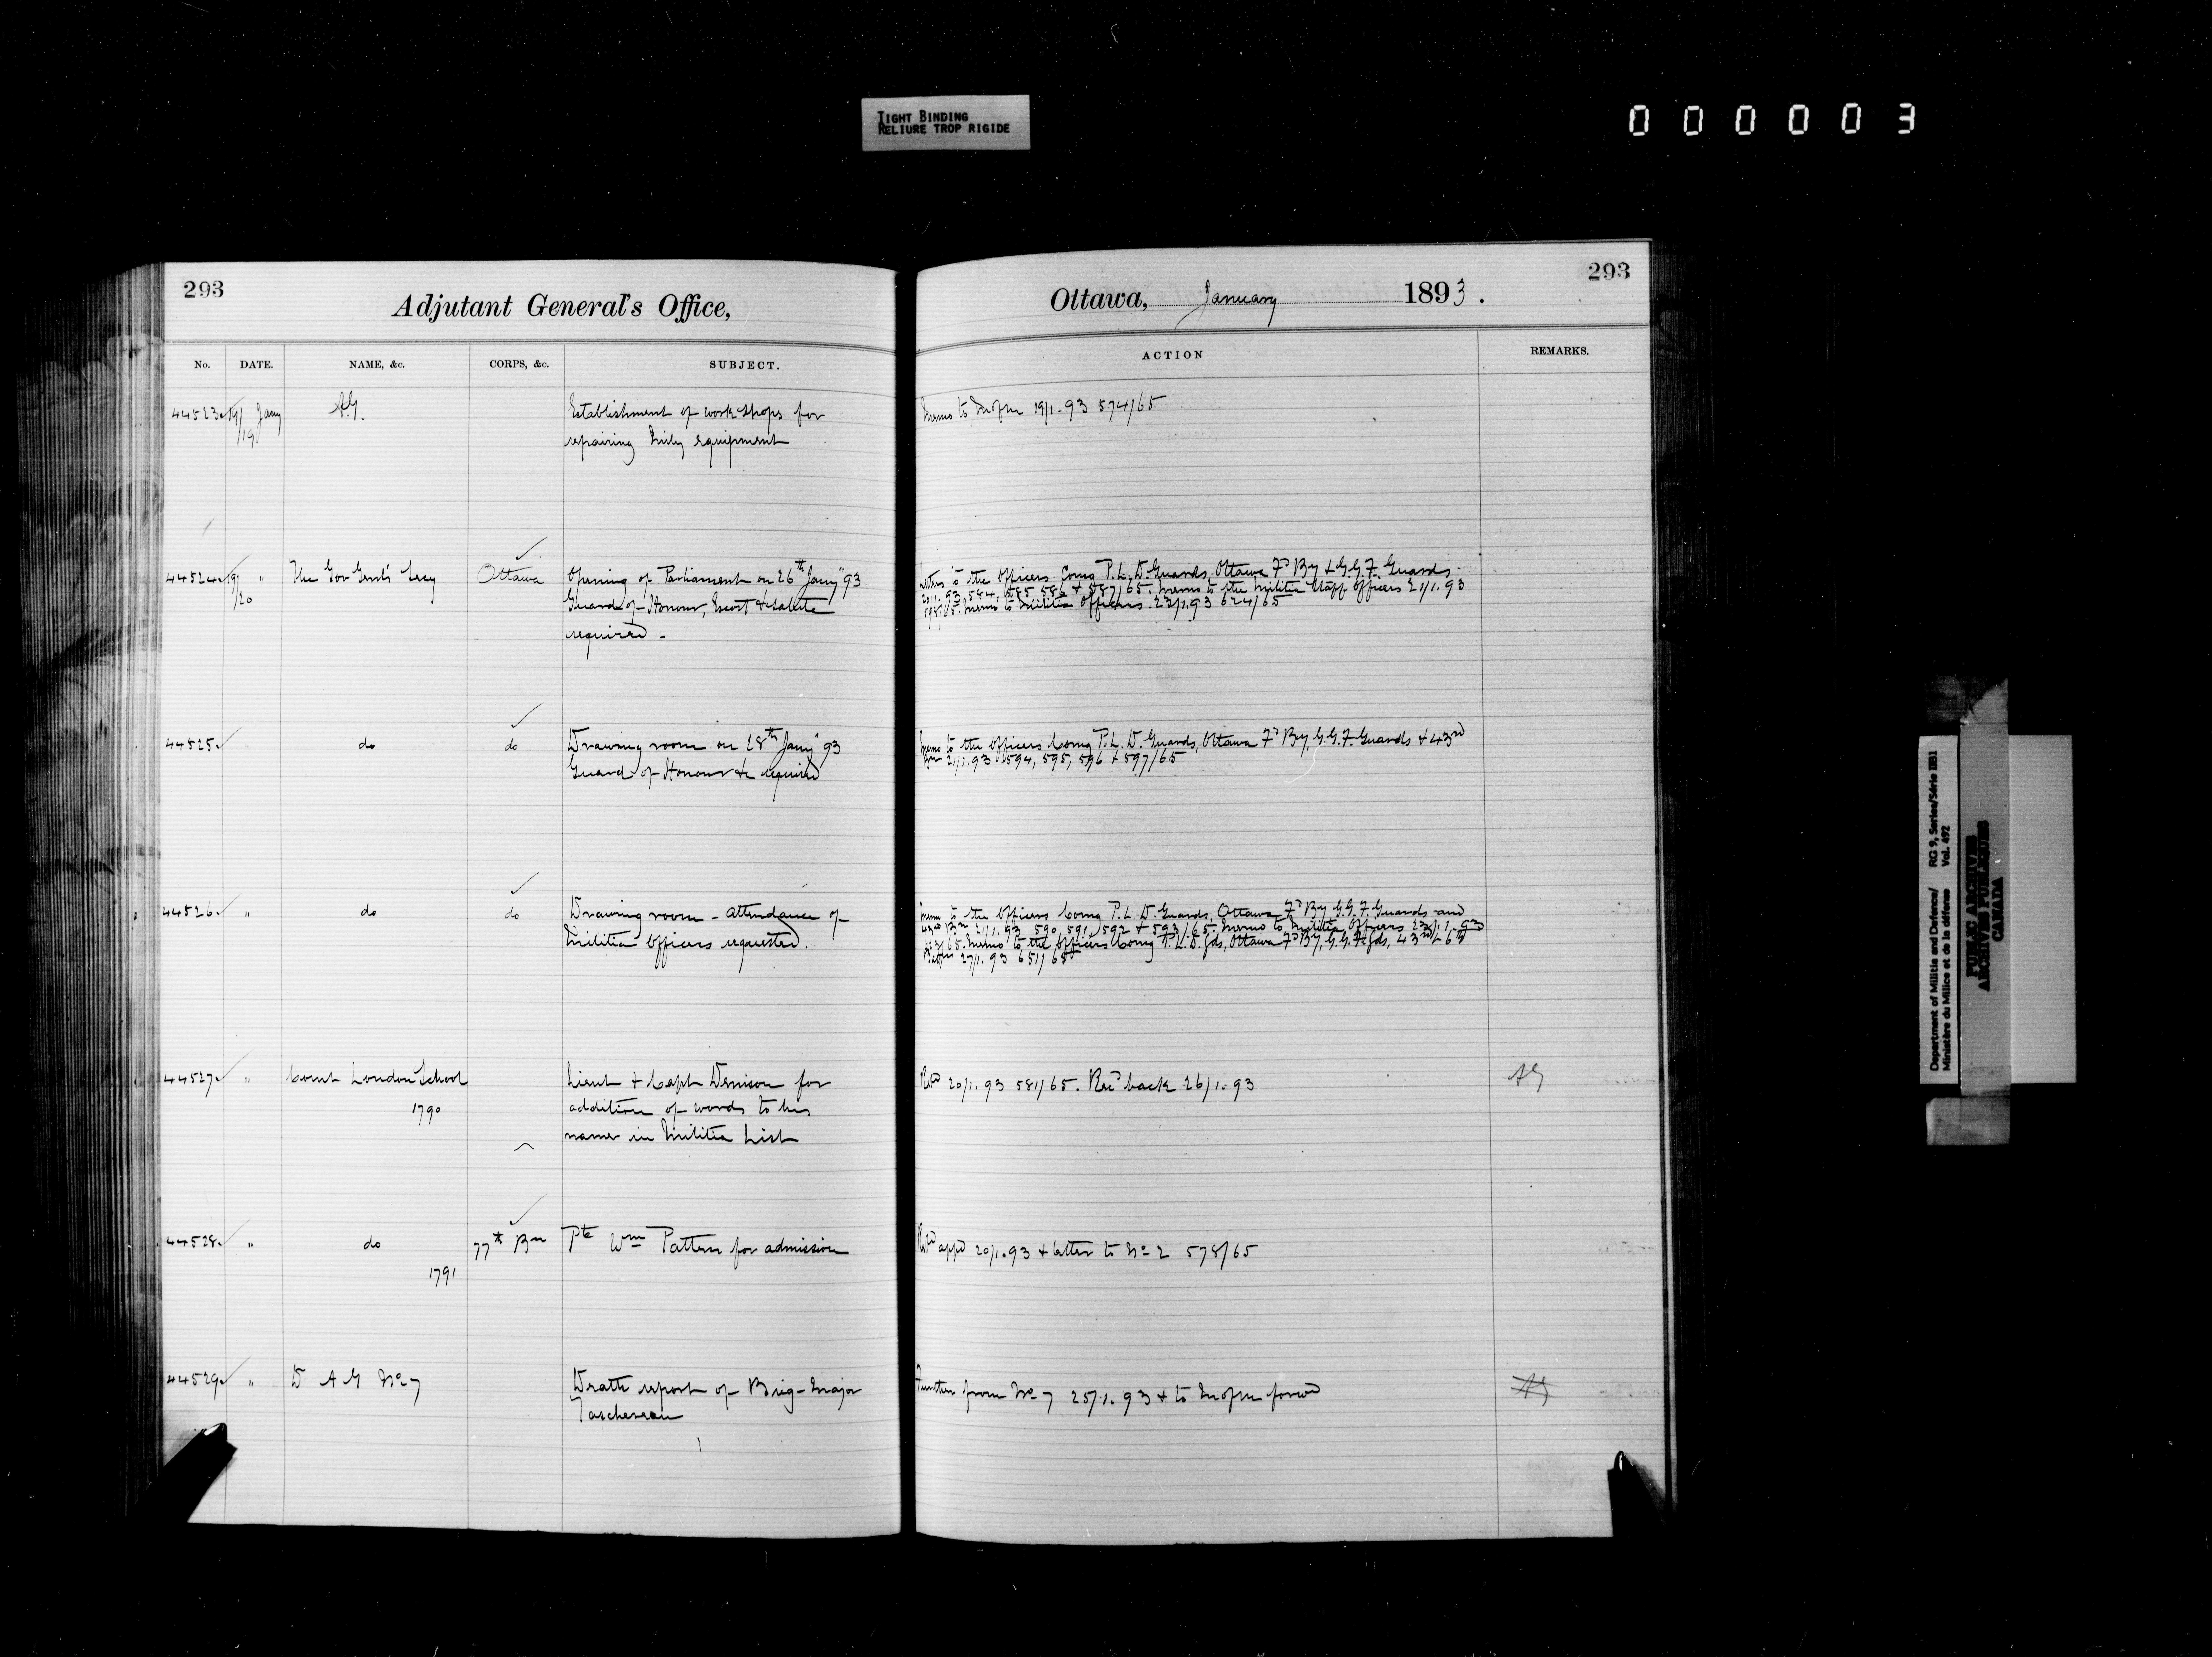 TIGHT BINDING
RELIURE TROP RIGIDE
000003
293
Adjutant General's Office,
No. DATE. NAME, &c. CORPS, &c. SUBJECT.
44523 19/19 Jany A.G. Establishment of work shops for
repairing Mily equipment
44524 19/20 " The Gov Genl's Secy Ottawa Opening of Parliament on 26th Jany "93
Guard of Honour, Escort & salute
required -
44525 " do do Drawing room on 28th Jany '93
Guard of Honour &c required
44526 " do do Drawing room - attendance of
Militia Officers requested.
44527 " Comt London School Lieut & Capt Denison for
1790 addition of words to his
name in Militia List
44528 " do 77th Bn Pte Wm Patten for admission
1791
44529 " D A G No 7 Death report of Brig-Major
Taschereau
293
Ottawa, January 1893.
ACTION REMARKS.
Memo to Mofm 19/1.93 574/65
Letters to the Officers Comg P.L.D. Guards, Ottawa Fd By & G.G.F. Guards
20/1.93 584, 585, 586 & 587/65. Memo to the Militia Staff Officers 21/1.93
598/65. Memo to Militia Officers 23/1.93 624/65
Memo to the Officers Comg P.L.D. Guards, Ottawa Fd By, G.G.F. Guards & 43rd
Bn 21/1.93 594, 595, 596 & 597/65
Memo to the Officers Comg P.L.D. Guards, Ottawa Fd By G.G.F. Guards and
43rd Bn 21/1.93 590, 591, 592 & 593/65. Memo to Militia Officers 23/1.93
623/65. Memo to the Officers Comg P.L.D. Gds, Ottawa Fd By, G.G.F. Gds, 43rd
27/1.93 651/65
Retd 20/1.93 581/65. Recd back 26/1.93 AG
Retd appd 20/1.93 & letter to No 2 578/65
Further from No 7 25/1.93 & to Mofm forwd AG
Department of Militia and Defence/ RG 9, Series/Série IIB1
Ministère du Milice et de la défense Vol. 492
PUBLIC ARCHIVES
ARCHIVES PUBLIQUES
CANADA